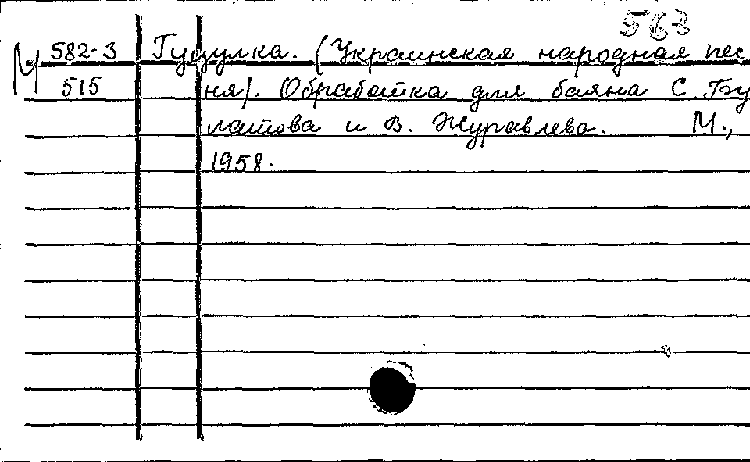 563
М 582-3 Гуцулка. (Украинская народная пес
515 ня). Обработка для баяна С. Бу
латова и В. Журавлева. М.,
1958.